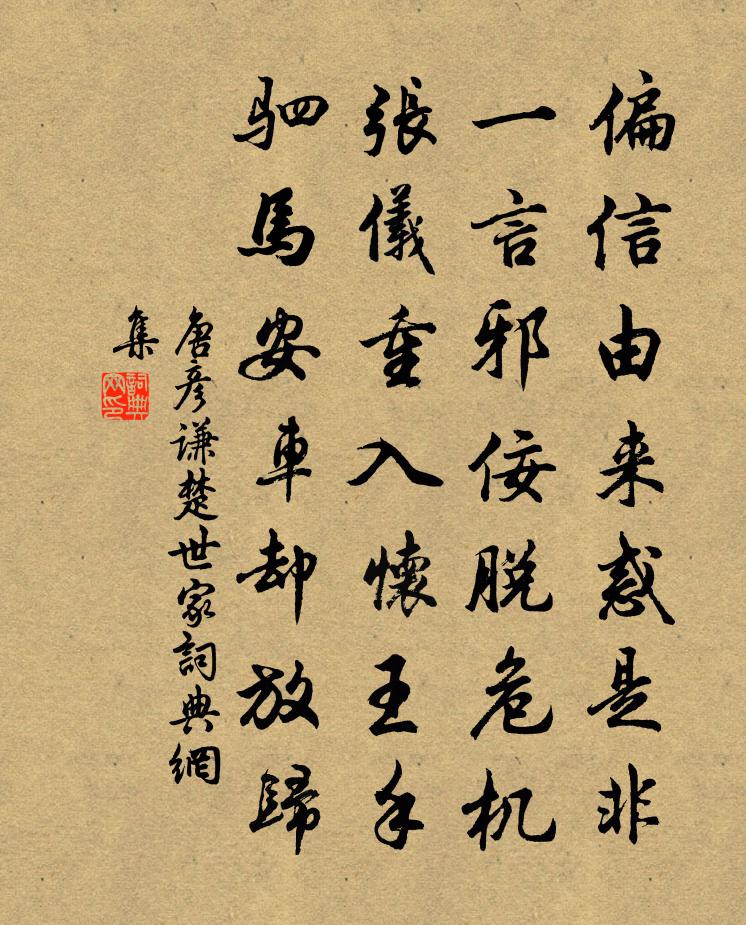 偏信由来惑是非
一言邪佞脱危机
張儀重入懷王手
駟馬安車却放歸
唐彦謙楚世家詞典網
集
詞典
网印